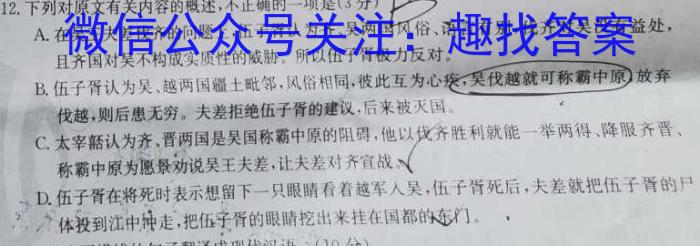 12.下列对原文有关内容的概述,不正确的一项是(3分)
微信公众号关注：趣找答案
且齐国对吴不构成实质性的威胁。所以伍子胥极力反对。
B.伍子胥认为吴、越两国疆土毗邻,风俗相同,彼此互为心疾,吴伐越就可称霸中原,放弃
伐越,则后患无穷。夫差拒绝伍子胥的建议,后来被灭国。
C.太宰嚭认为齐、晋两国是吴国称霸中原的阻碍,他以伐齐胜利就能一举两得、降服齐晋、
称霸中原为愿景劝说吴王夫差,让夫差对齐宣战。
D.伍子胥在将死时表示想留下一只眼睛看着越军人吴,伍子胥死后,夫差就把伍子胥的尸
体投到江中冲走,把伍子胥的眼睛挖出来挂在国都的东门。